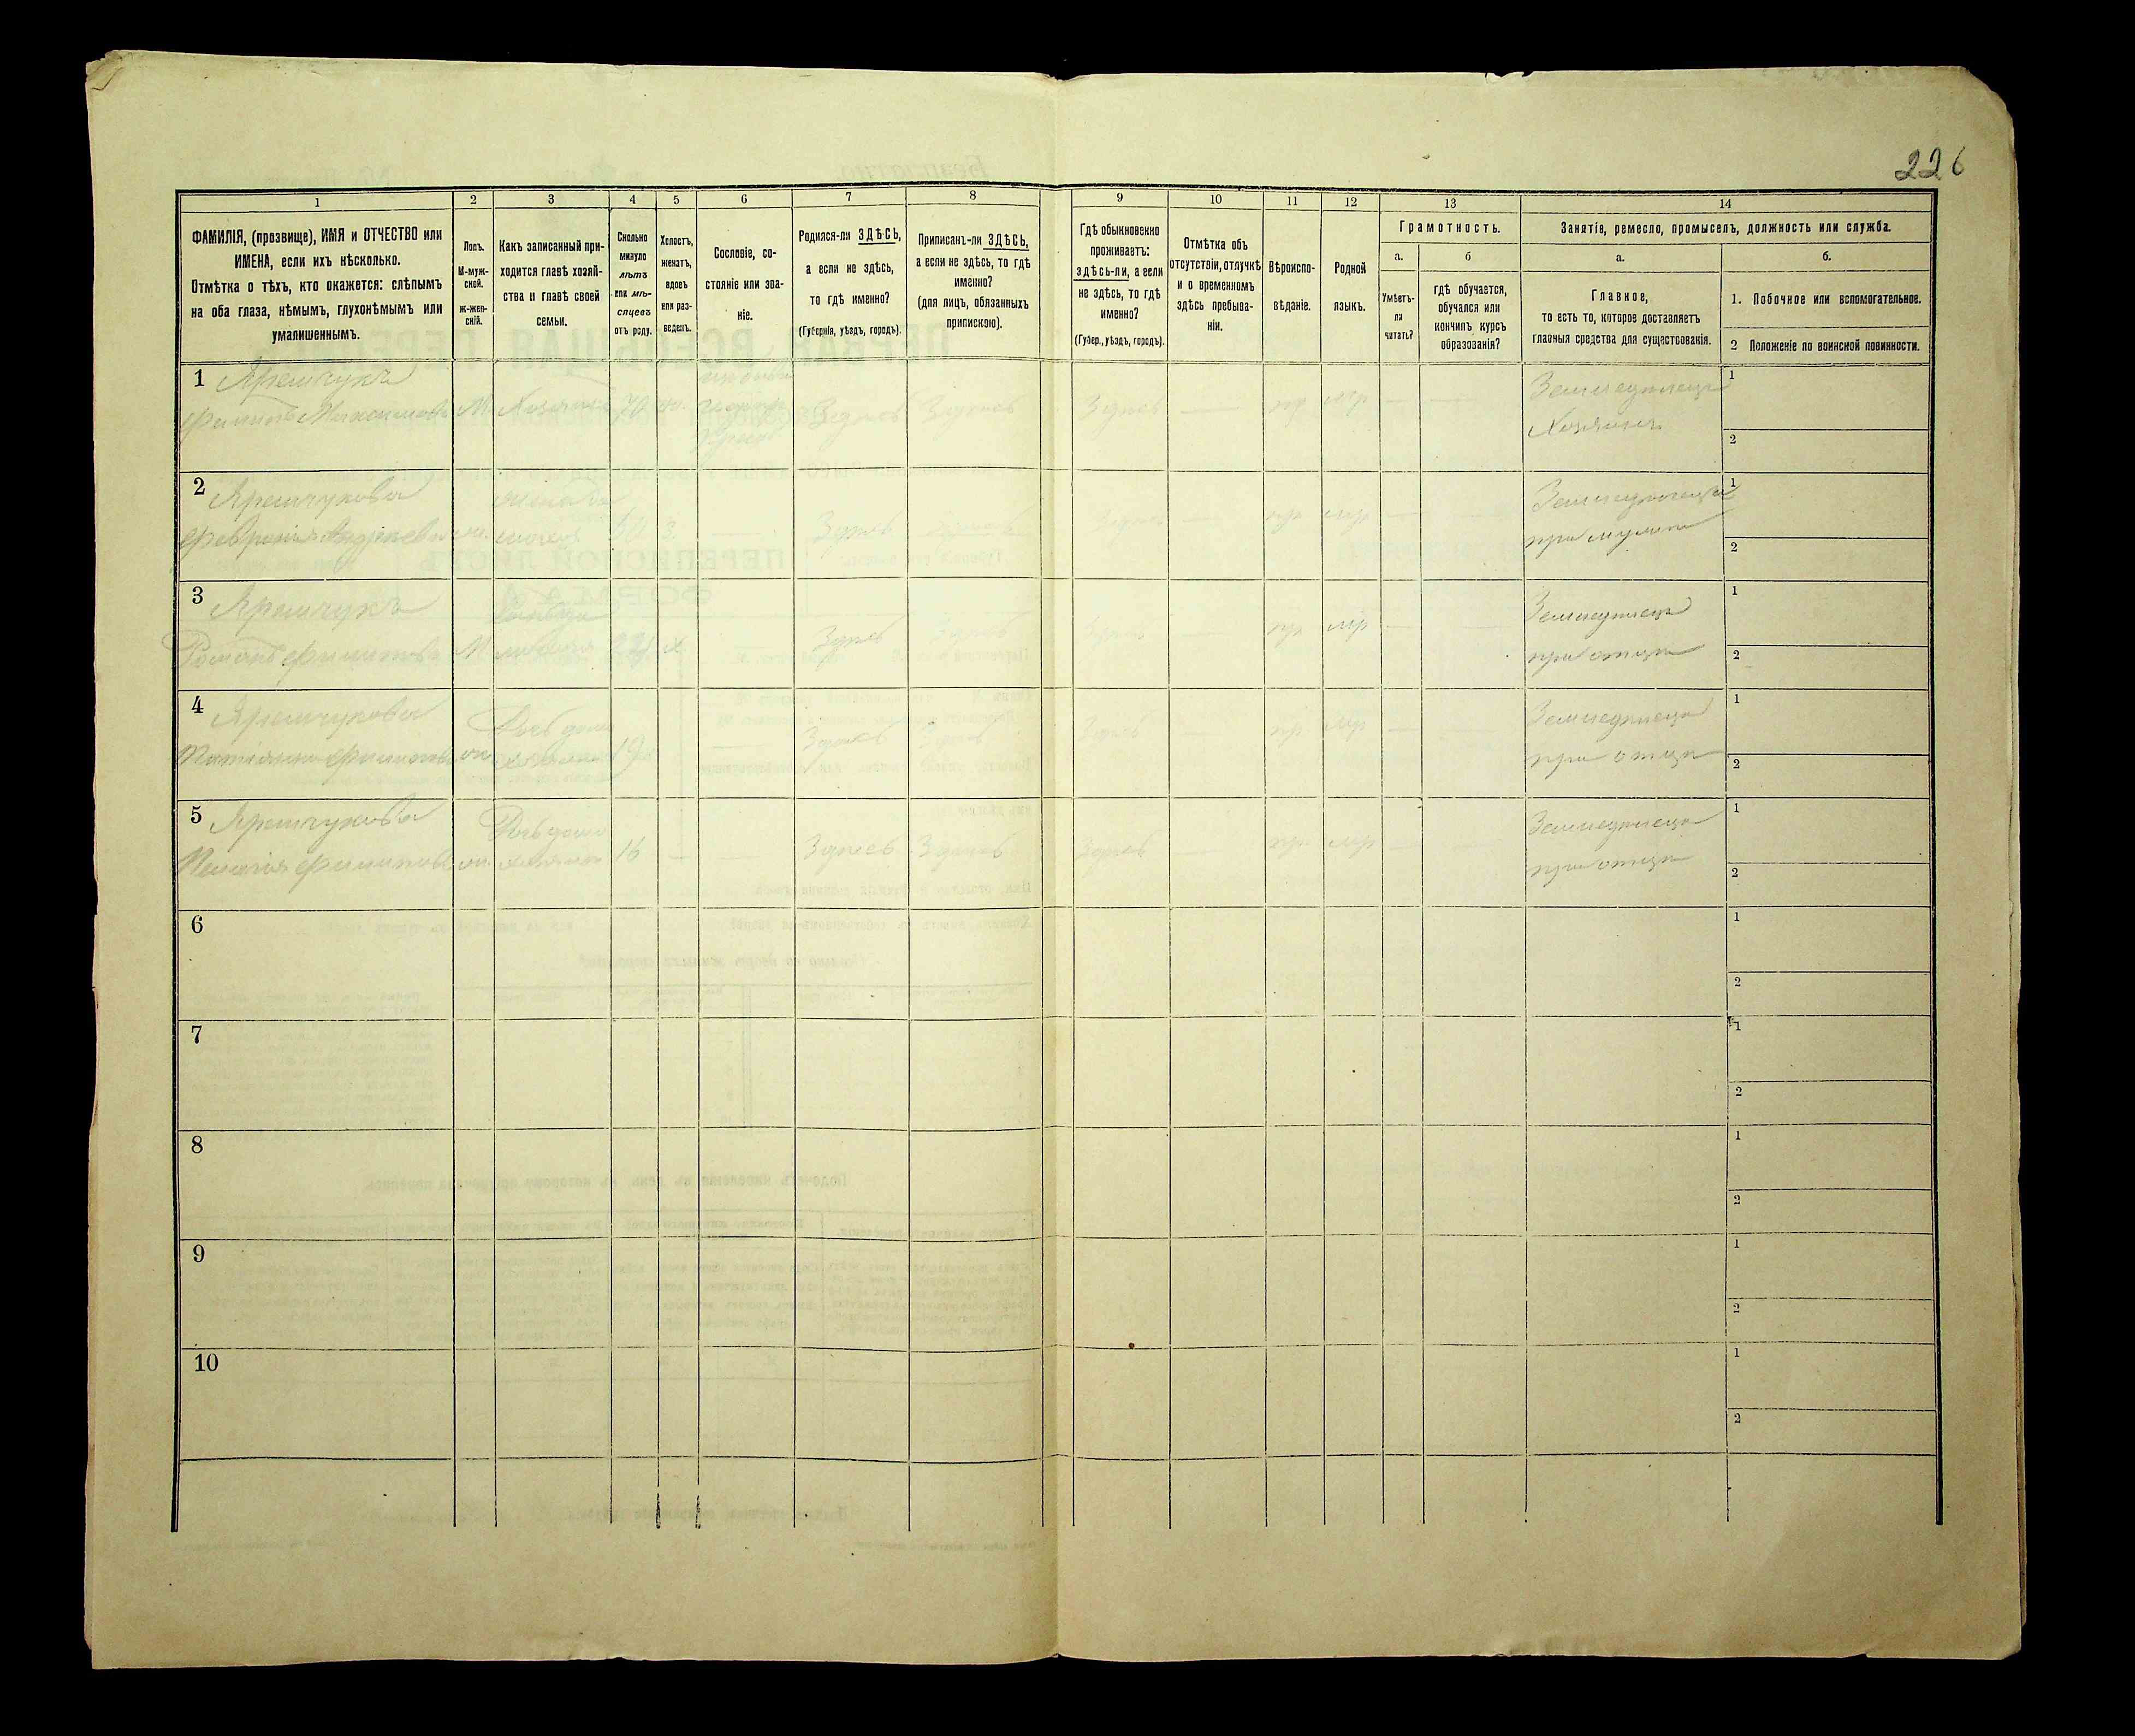 226
1
2
3
4
5
6
7
8
9
10
11
12
13
14
ФАМИЛІЯ, (прозвище), ИМЯ и ОТЧЕСТВО или
ИМЕНА, если ихъ нѣсколько.
Отмѣтка о тѣхъ, кто окажется: слѣпымъ
на оба глаза, нѣмымъ, глухонѣмымъ или
умалишеннымъ.
Полъ.
М-муж-
ской.
ж-жен-
скій.
Какъ записанный при-
ходится главѣ хозяй-
ства и главѣ своей
семьи.
Сколько
минуло
лѣтъ
или мѣ-
сяцевъ
отъ роду.
Холостъ,
женатъ,
вдовъ
или раз-
веденъ.
Сословіе, со-
стояніе или зва-
ніе.
Родился-ли ЗДѢСЬ,
а если не здѣсь,
то гдѣ именно?
(Губернія, уѣздъ, городъ).
Приписанъ-ли ЗДѢСЬ,
а если не здѣсь, то гдѣ
именно?
(для лицъ, обязанныхъ
припискою).
Гдѣ обыкновенно
проживаетъ:
здѣсь-ли, а если
не здѣсь, то гдѣ
именно?
(Губер., уѣздъ, городъ).
Отмѣтка объ
отсутствіи, отлучкѣ
и о временномъ
здѣсь пребыва-
ніи.
Вѣроиспо-
вѣданіе.
Родной
языкъ.
Грамотность.
а.
Умѣетъ-
ли
читать?
б
гдѣ обучается,
обучался или
кончилъ курсъ
образованія?
Занятіе, ремесло, промыселъ, должность или служба.
а.
Главное,
то есть то, которое доставляетъ
главныя средства для существованія.
б.
1. Побочное или вспомогательное.
2 Положеніе по воинской повинности.
1 Яремчукъ
Филиппъ Максимовъ М. Хозяинъ 70 Здѣсь Здѣсь Здѣсь — пр мр — —
Земледѣлецъ
Хозяинъ
1
2
2 Яремчукова
Февронія ж. 50 з. — Здѣсь Здѣсь Здѣсь — пр мр — —
Земледѣлецъ
при мужѣ
1
2
3 Яремчукъ
Романъ Филиповъ М х — Здѣсь Здѣсь Здѣсь — пр мр — —
Земледѣлецъ
при отцѣ
1
2
4 Яремчукова
Татіана Филипова ж. Дочь 19 Здѣсь Здѣсь Здѣсь — пр мр — —
Земледѣлецъ
при отцѣ
1
2
5 Яремчукова
Пелагія Филипова ж. Дочь 16 — — Здѣсь Здѣсь Здѣсь — пр мр — —
Земледѣлецъ
при отцѣ
1
2
6
1
2
7
1
2
8
1
2
9
1
2
10
1
2